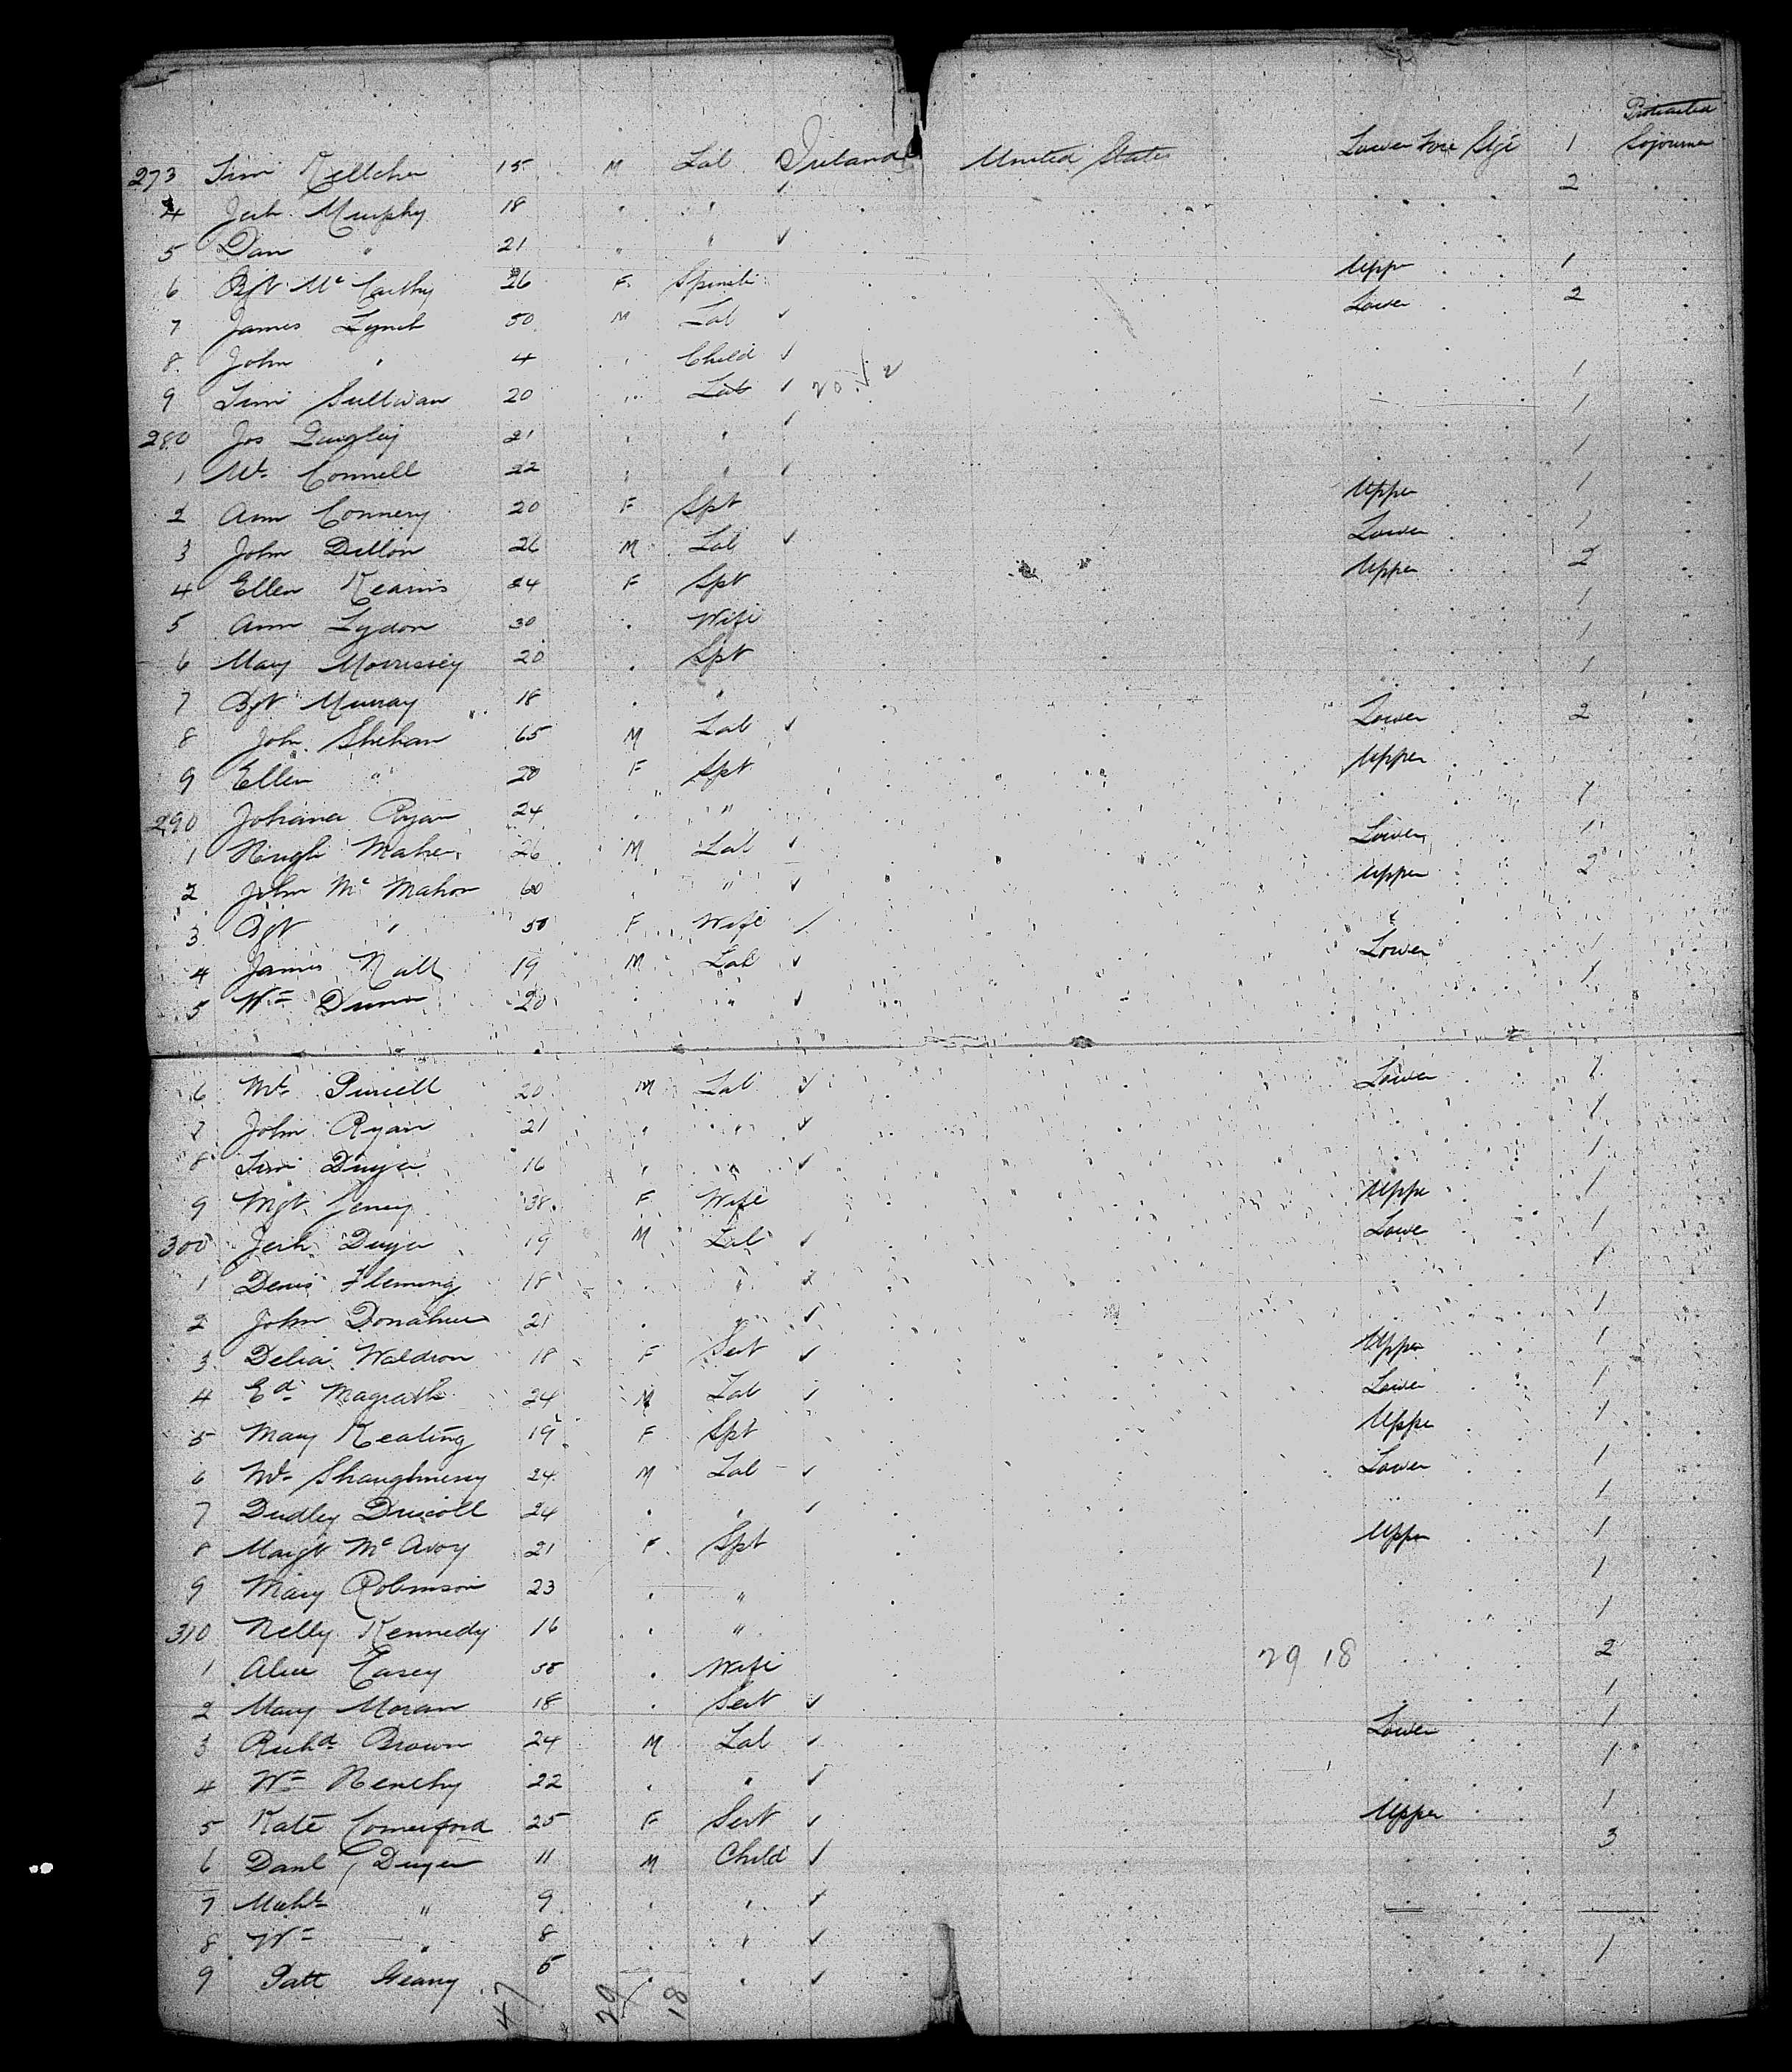 Protracted
273 Tim Kelleher 15 M Lab Ireland United States Lower Fore Stge 1 Sojourn
4 Jerh Murphy 18 " " 2
5 Dan " 21 " "
6 Bgt McCarthy 26 F Spinster Upper 1
7 James Lynch 50 M Lab Lower 2
8 John " 4 " Child
9 Tim Sullivan 20 " Lab 20 2 1
280 Jos Quigley 21 " " 1
1 Ml Connell 22 " " 1
2 Ann Connery 20 F Spt Upper 1
3 John Dillon 26 M Lab Lower 1
4 Ellen Kearns 24 F Spt Upper 2
5 Ann Lydon 30 " Wife 1
6 Mary Morrissey 20 " Spt 1
7 Bgt Murray 18 " " 1
8 John Shehan 65 M Lab Lower 2
9 Ellen " 20 F Spt Upper
290 Johana Ryan 24 " " 1
1 Hugh Maher 26 M Lab Lower 1
2 John McMahon 60 " " Upper 2
3 Bgt " 50 F Wife "
4 James Neill 19 M Lab Lower 1
5 Wm Dunn 20 " " 1
6 Ml Purcell 20 M Lab Lower 1
7 John Ryan 21 " " 1
8 Tim Dwyer 16 " " 1
9 Mgt 38 F Wife Upper 1
300 Jerh Dwyer 19 M Lab Lower 1
1 Denis Fleming 18 " " 1
2 John Donahue 21 " " 1
3 Delia Waldron 18 F Sert Upper 1
4 Ed Magrath 24 M Lab Lower 1
5 Mary Keating 19 F Spt Upper 1
6 Ml Shaughnessy 24 M Lab Lower 1
7 Dudley Driscoll 24 " " 1
8 Margt McAvoy 21 F Spt Upper 1
9 Mary Robinson 23 " " 1
310 Nelly Kennedy 16 " " 1
1 Alice Casey 38 " Wife 29 18 2
2 Mary Moran 18 " Sert 1
3 Richd Brown 24 M Lab Lower 1
4 Wm Henchy 22 " " 1
5 Kate Comerford 25 F Sert Upper 1
6 Danl Dwyer 11 M Child 3
7 Michl " 9 " "
8 Wm " 8 " "
9 Patt Geany 5 " " 1
47 29 18